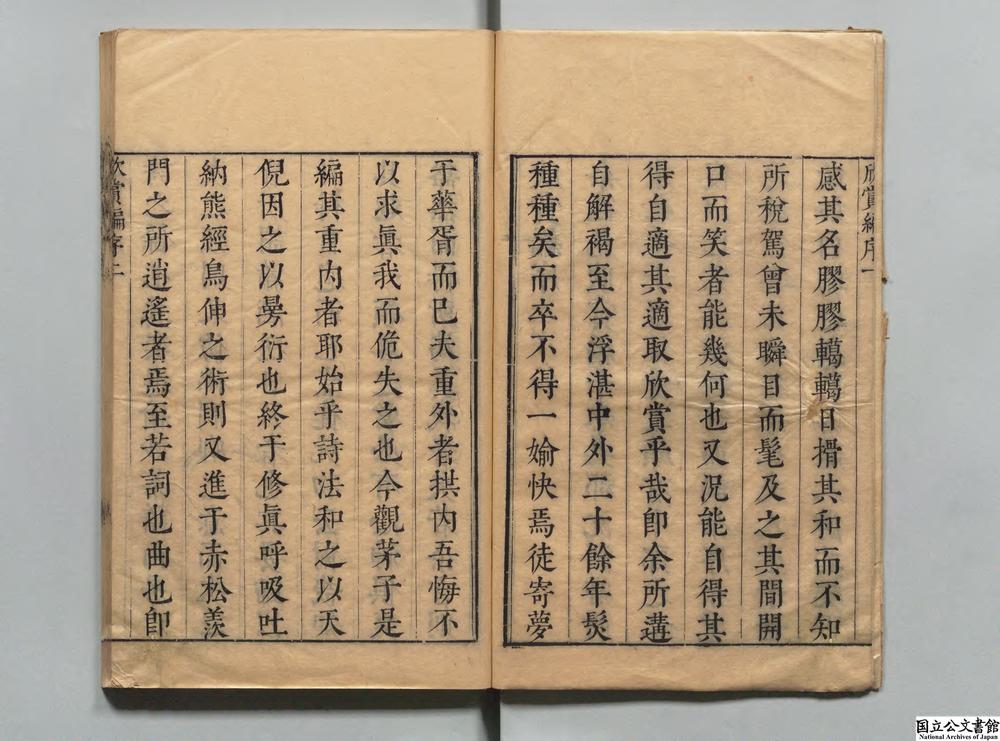 欣賞編序一
感其名膠膠轕轕日搰其和而不知
所稅駕曾未瞬目而髦及之其間開
口而笑者能幾何也又況能自得其
得自適其適取欣賞乎哉卽余所遘
自解褐至今浮湛中外二十餘年髮
種種矣而卒不得一媮快焉徒寄夢
于華胥而已夫重外者拱内吾悔不
以求眞我而佹失之也今觀茅子是
編其重内者耶始乎詩法和之以天
倪因之以曼衍也終于修眞呼吸吐
納熊經鳥伸之術則又進于赤松羨
門之所逍遙者焉至若詞也曲也卽
欣賞編序二
国立公文書館
National Archives of Japan